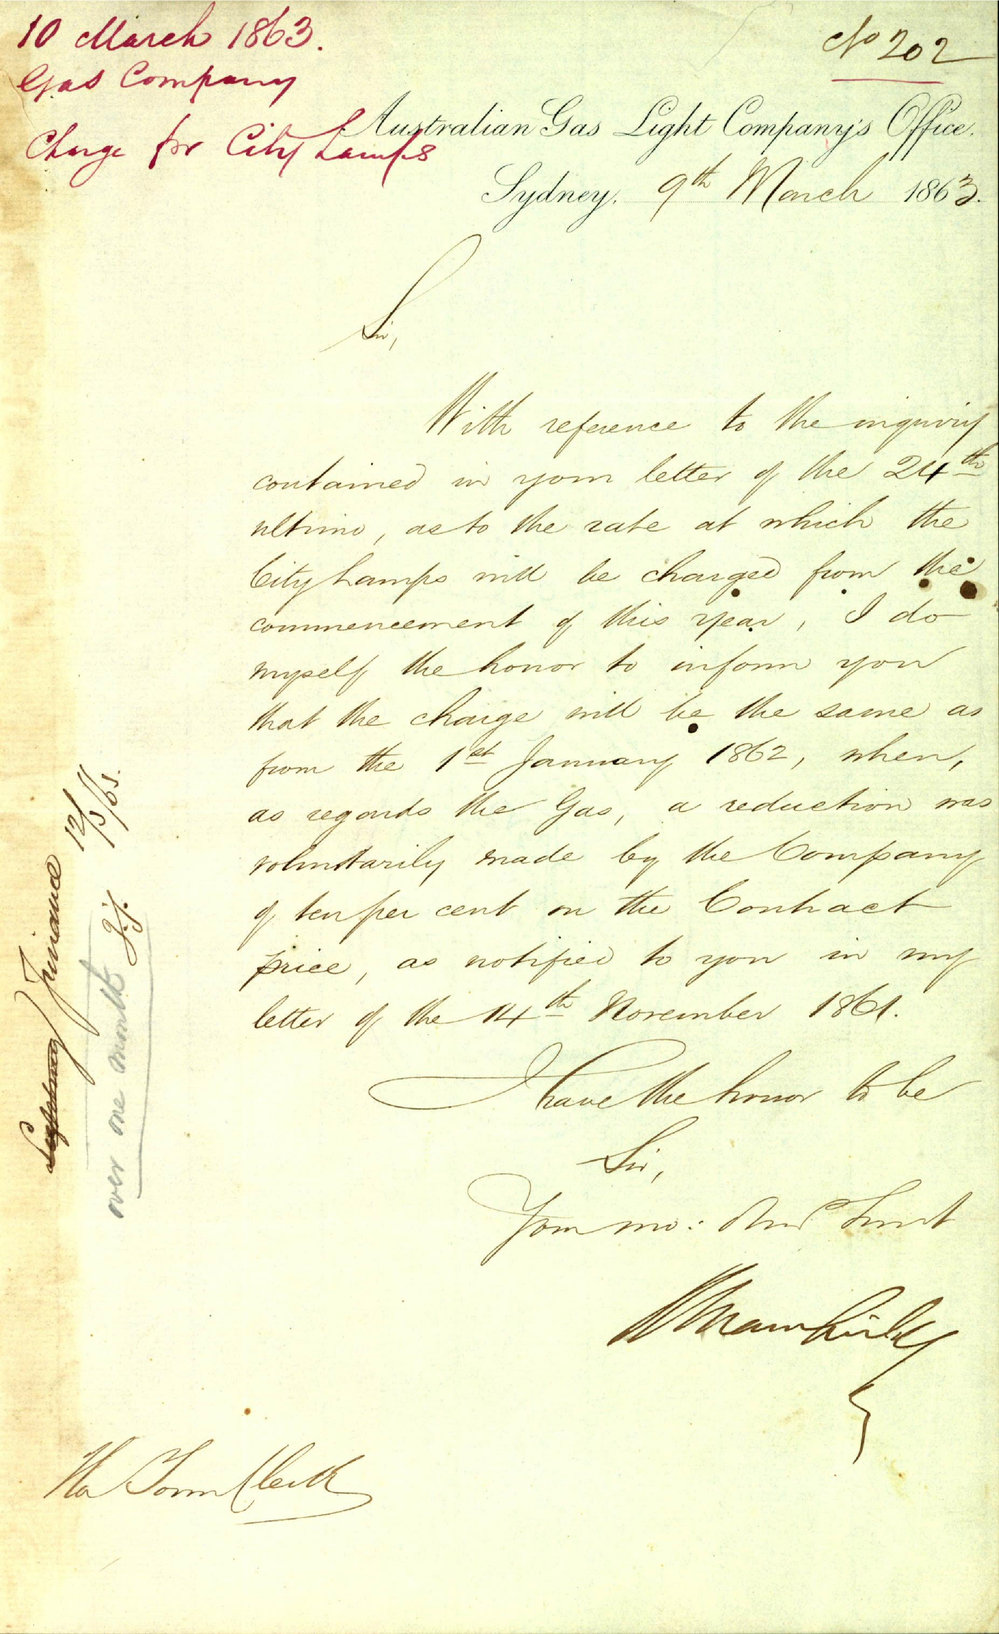 10 March 1863.
Gas Company
Charge for City Lamps
No 202
Australian Gas Light Company's Office.
Sydney. 9th March 1863.
Sir,
With reference to the inquiry
contained in your letter of the 24th
ultimo, as to the rate at which the
City Lamps will be charged from the
commencement of this year, I do
myself the honor to inform you
that the charge will be the same as
from the 1st January 1862, when,
as regards the Gas, a reduction was
voluntarily made by the Company
of ten per cent on the Contract
price, as notified to you in my
letter of the 14th November 1861.
I have the honor to be
Sir,
Your mo: Obed Servt
The Town Clerk
Lighting Finance 12/3/63.
over one month